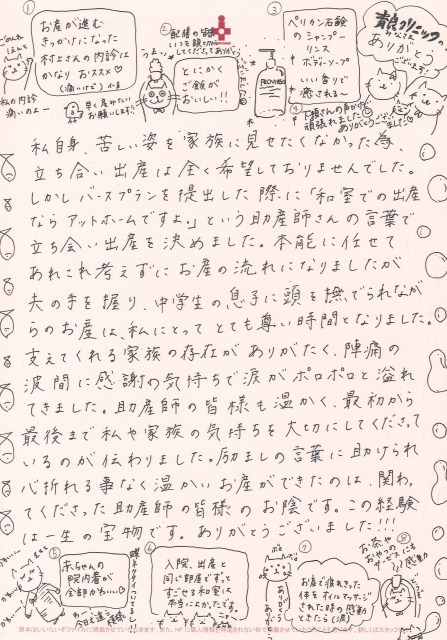 ①
お産が進む
きっかけになった
村上さんの内診は
かなりおススメ♡
(痛いけど)
ごめんね
ほんと
私の内診
痛いのよー
早く産みたい
お願いします!!
②
配膳の
いつも
してくださってありがとう
とにかく
ご飯が
おいしい!!
③
ペリカン石鹸
のシャンプー
リンス
ボディーソープ
いい香りで
癒される〜
PROVINCIA
④
さんの声かけ
頑張れました
ありがとうございました
青良クリニック
みなさま
ありがとう
ございます!
私自身、苦しい姿を家族に見せたくなかった為、
立ち合い出産は全く希望しておりませんでした。
しかしバースプランを提出した際に「和室での出産
ならアットホームですよ。」という助産師さんの言葉で
立ち会い出産を決めました。本能に任せて
あれこれ考えずにお産の流れになりましたが
夫の手を握り、中学生の息子に頭を撫でられなが
らのお産は、私にとってとても尊い時間となりました。
支えてくれる家族の存在がありがたく、陣痛の
波間に感謝の気持ちで涙がポロポロと溢れ
てきました。助産師の皆様も温かく、最初から
最後まで私や家族の気持ちを大切にしてくださって
いるのが伝わりました。励ましの言葉に助けられ
心折れる事なく温かいお産ができたのは、関わっ
てくださった助産師の皆様のお陰です。この経験
は一生の宝物です。ありがとうございました!!!
⑤
赤ちゃんの
院内着が
全部かわいい♡
かわいい〜
蝶ネクタイついてるし
⑥
入院、出産と
同じ部屋でずっと
すごせる和室は
本当によかったです。
⑦
お産で疲れきった
体をオイルマッサージ
された時の感動
ときたら(涙)
⑧
お茶や
おやつの
サービスにも
感動